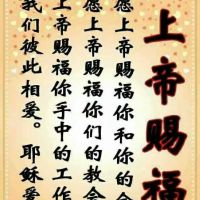 上帝赐福
愿上帝赐福你和你的
愿上帝赐福你们的教会
上帝赐福你手中的工作
我们彼此相爱。耶稣爱